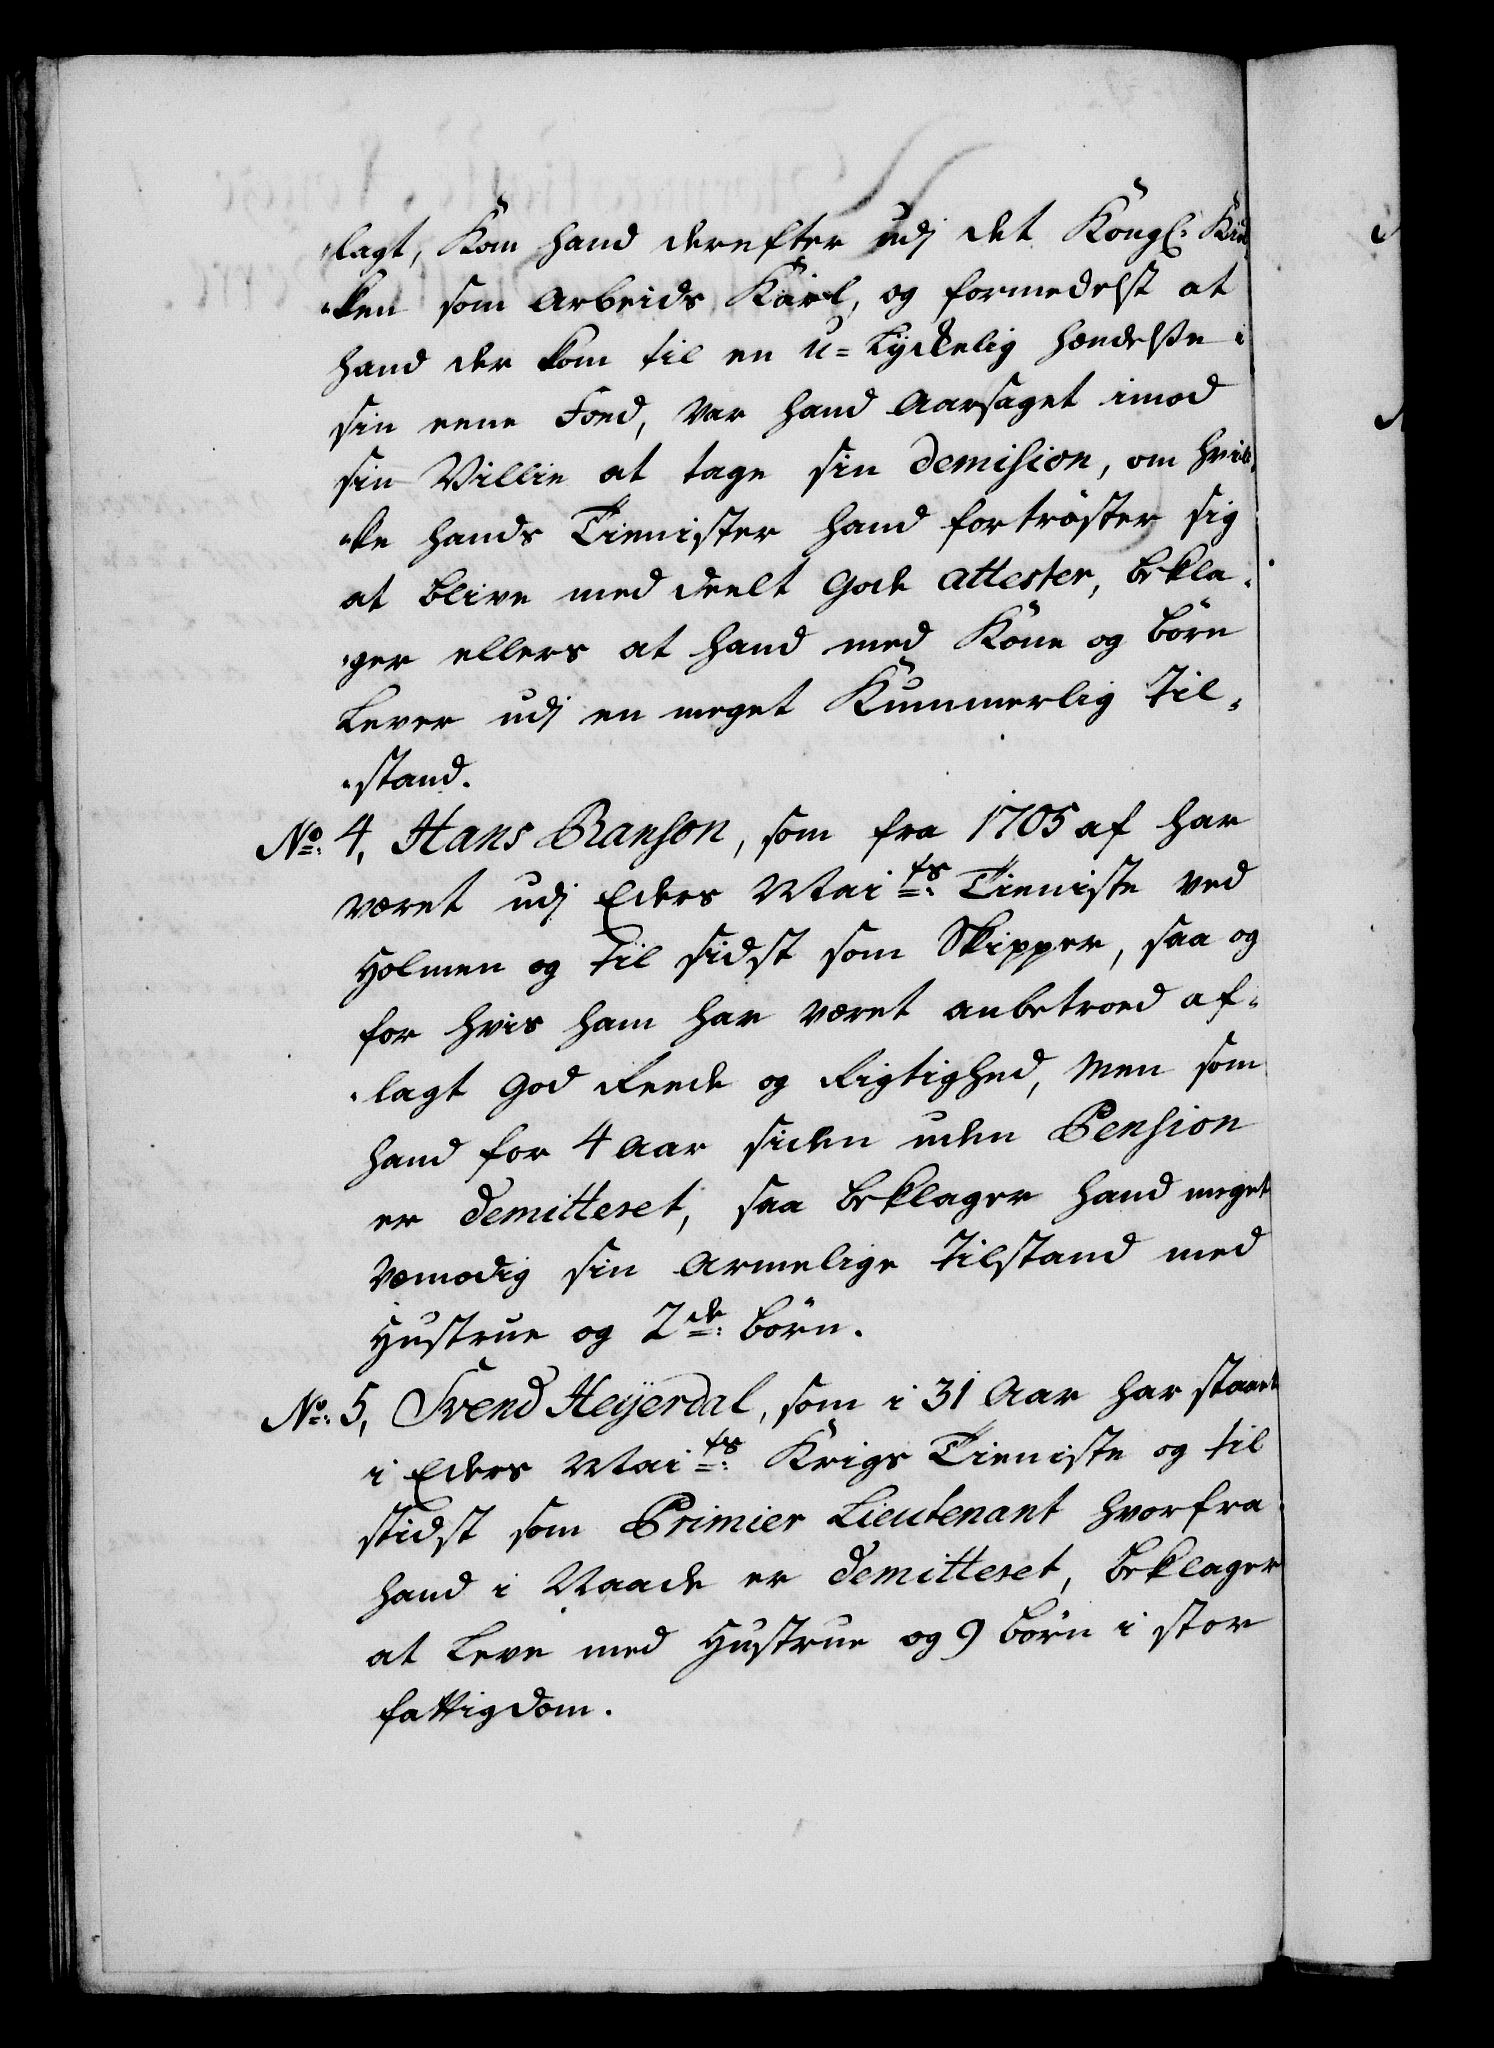 lagt, Kom hand derefter udj det Kongl:
ken som Arbeids Karl, og formedelst at
hand der kom til en u=Lyckelig hændelse i
sin eene Foed, var hand Aarsaget imod
sin Villie at tage sin Demission, om hvil-
ke hands Tienister hand fortrøster sig
at blive meddeelt Gode attester, bekla-
ger ellers at hand med Kone og børn
Lever udj en meget Kummerlig Til-
stand.
No: 4, Hans Ranson, som fra 1705 af har
været udj Eders Maits: Tieniste ved
Holmen og til sidst som Skipper, saa og
for hvis ham har været anbetroed af-
lagt God Reede og Rigtighed, Men som
hand for 4 Aar siden uden Pension
er demitteret, saa beklager hand meget
Vemodig sin Armelige Tilstand med
Hustrue og 2de: børn.
No: 5, Svend Heÿerdal, som i 31 Aar har staaet
i Eders Maits: Krigs Tieniste og til
sidst som Primier Lieutenant hvorfra
hand i Naade er demitteret, beklager
at Leve med Hustrue og 9 børn i stor
fattigdom.